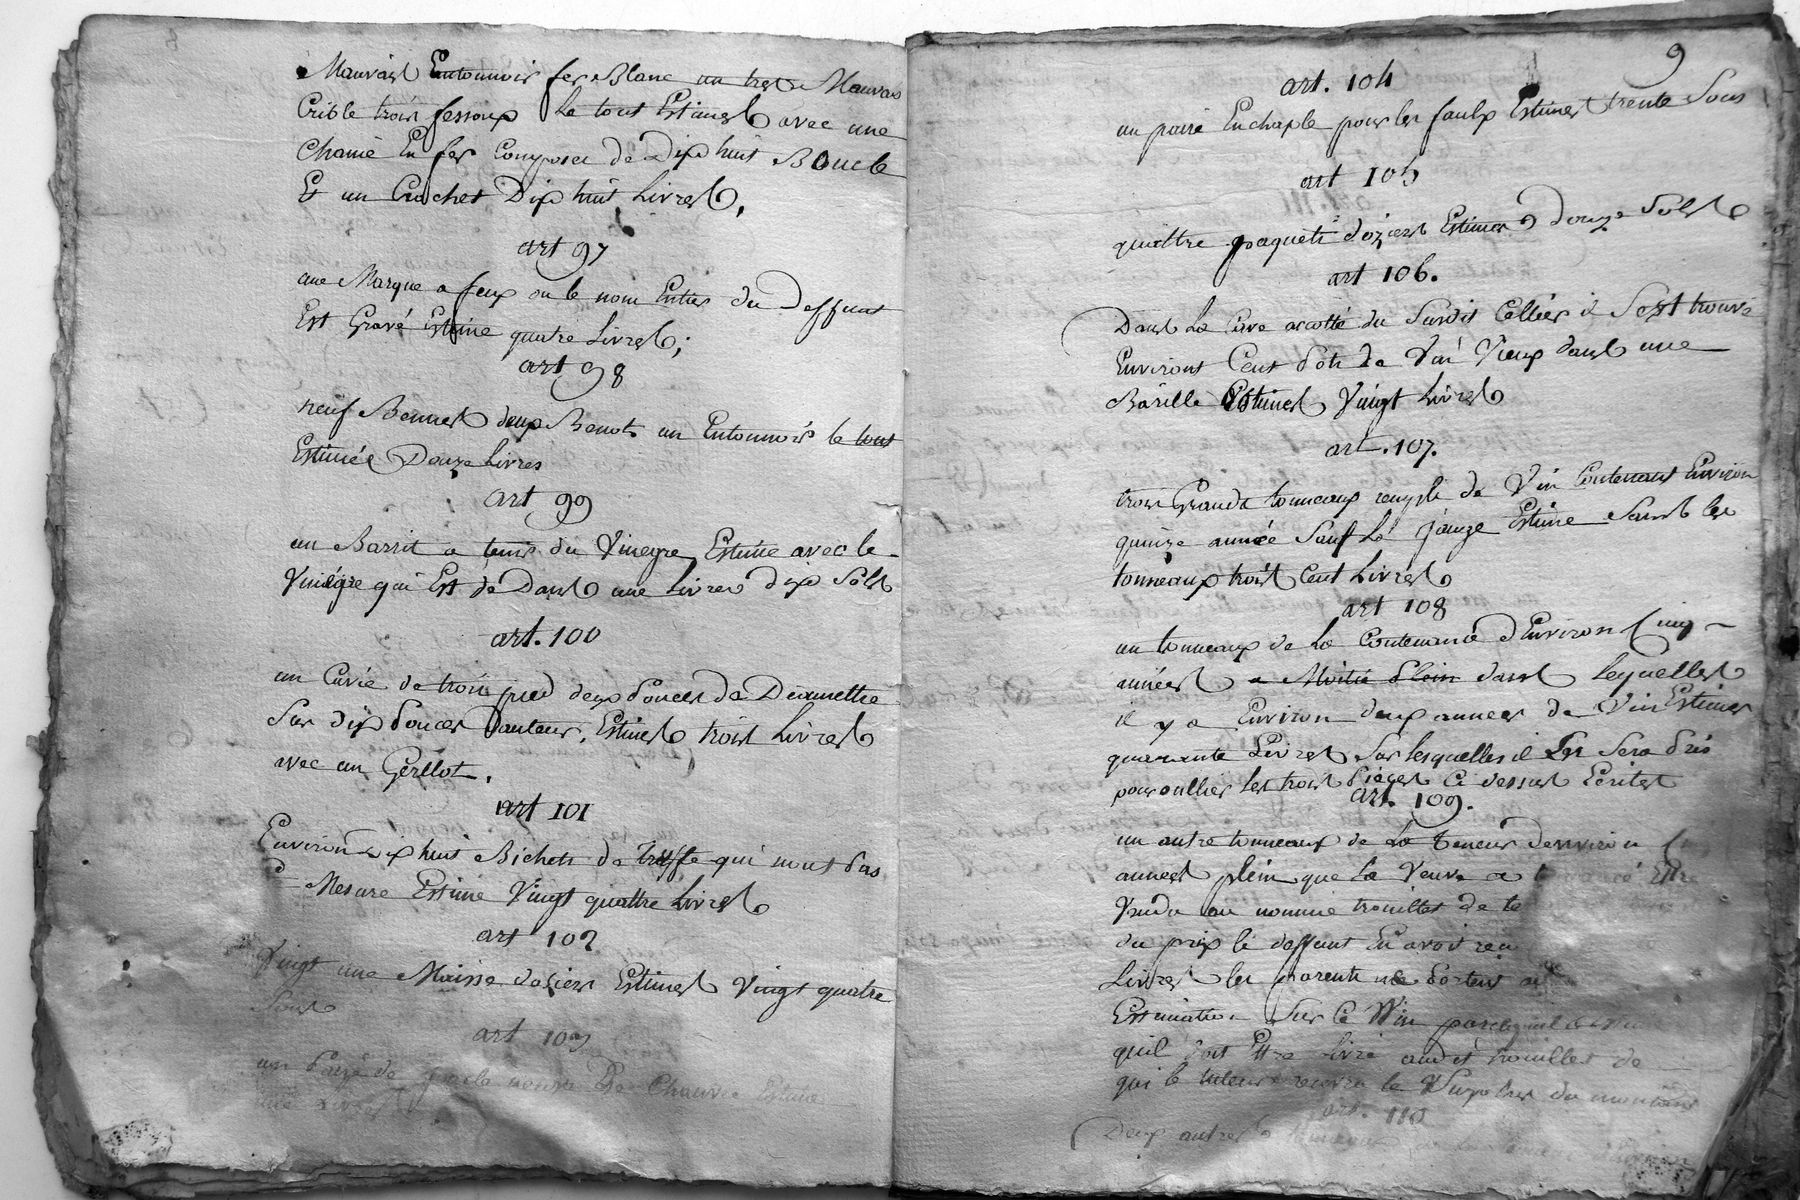 Mauvais Entonnoir fer Blanc un tres Mauvais
Crible trois fessoux Le tout Estimes avec une
Chaine En fer Composer de Dix huit Boucle
Et un Crochet Dix huit Livres,
art 97
une Marque a feux ou le nom Entier du Deffunt
Est Gravé Estime quatre Livres;
art 98
neuf Bennes deux Benots un Entonnoir le tout
Estimée Douze Livres
art 99
un Barrit a tenir du Vinegre Estime avec le
Vinégre qui Est de Dans une Livres dix Sols
art. 100
un Cuvie de trois pied deux Pouces de Deiamettre
Sur dix Pouces Dauteur, Estimes trois Livres
avec un Gerllot.
art 101
Environ dix huit Bichets de truffe qui nont Pas
Mesure Estime Vingt quattre Livres
art 102
Vingt une Maisse dosiers Estimes Vingt quatre
Sous
art 103
un Paire de Chanvre Estime
art. 104
9
un paire Enchaple pour les faulx Estimes trente Sous
art 105
quattre paquets d'oziers Estimes douze Sols
art 106.
Dans La Cave acotté du Surdit Cellier il Sest trouvé
Environt Cent Pots de Vin Vieux dans une
Barille Estimes Vingt Livres
art. 107.
trois Grands tonneaux remply de Vin Contenant Environ
quinze année Sauf La Jauge Estime Sans les
tonneaux trois Cent Livres
art 108
un tonneaux de La Contenance d'Environ Cinq
années a Moitie Plein dans Lequelles
il y a Environ deux annees de Vin Estimes
quarante Livres Sur lesquelles il En Sera Pris
pour oullier les trois Pieces Ci dessus Ecrites
art. 109.
un autre tonneaux de La teneur denviron
annees plein que La Veuve a Estre
Vendu au nommé trouillet de
du prix le deffunt En avoit reçu
Livres les parents ne Porter
Estimation Sur Ce Vin parcequil
quil doit Etre Livré audit trouillet de
qui le tuteur recevra le Surplus du montant
art. 110
Deux autres